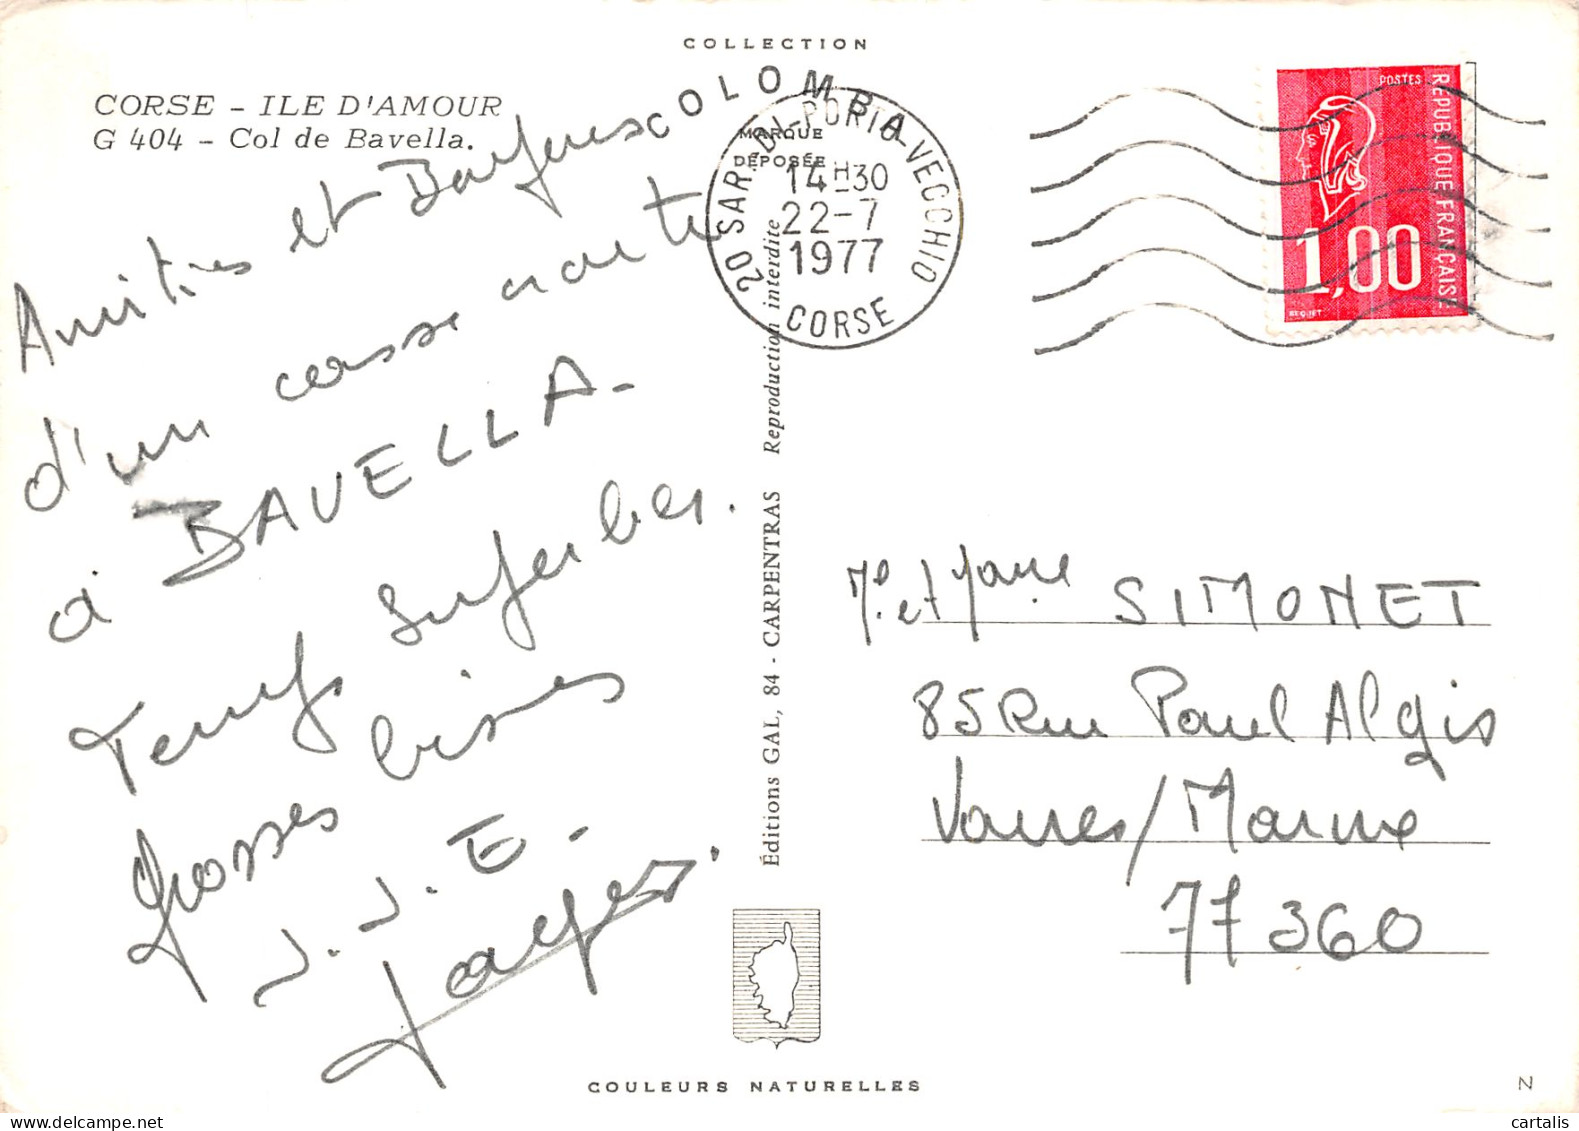 COLLECTION
COLOMBA
MARQUE
DÉPOSÉE
CORSE - ILE D'AMOUR
G 404 - Col de Bavella.
20 SARI-DI-PORTO-VECCHIO
14H30
22-7
1977
CORSE
POSTES
RÉPUBLIQUE FRANÇAISE
1,00
BEQUET
Amitiés et
d'un casse croute
à BAVELLA-
Temps superbes.
Grosses bises
J. J. E-
Reproduction interdite
Éditions GAL, 84 - CARPENTRAS
et SIMONET
85 Rue Paul Algis
Vaires/Marne
77360
COULEURS NATURELLES
N
cartalis